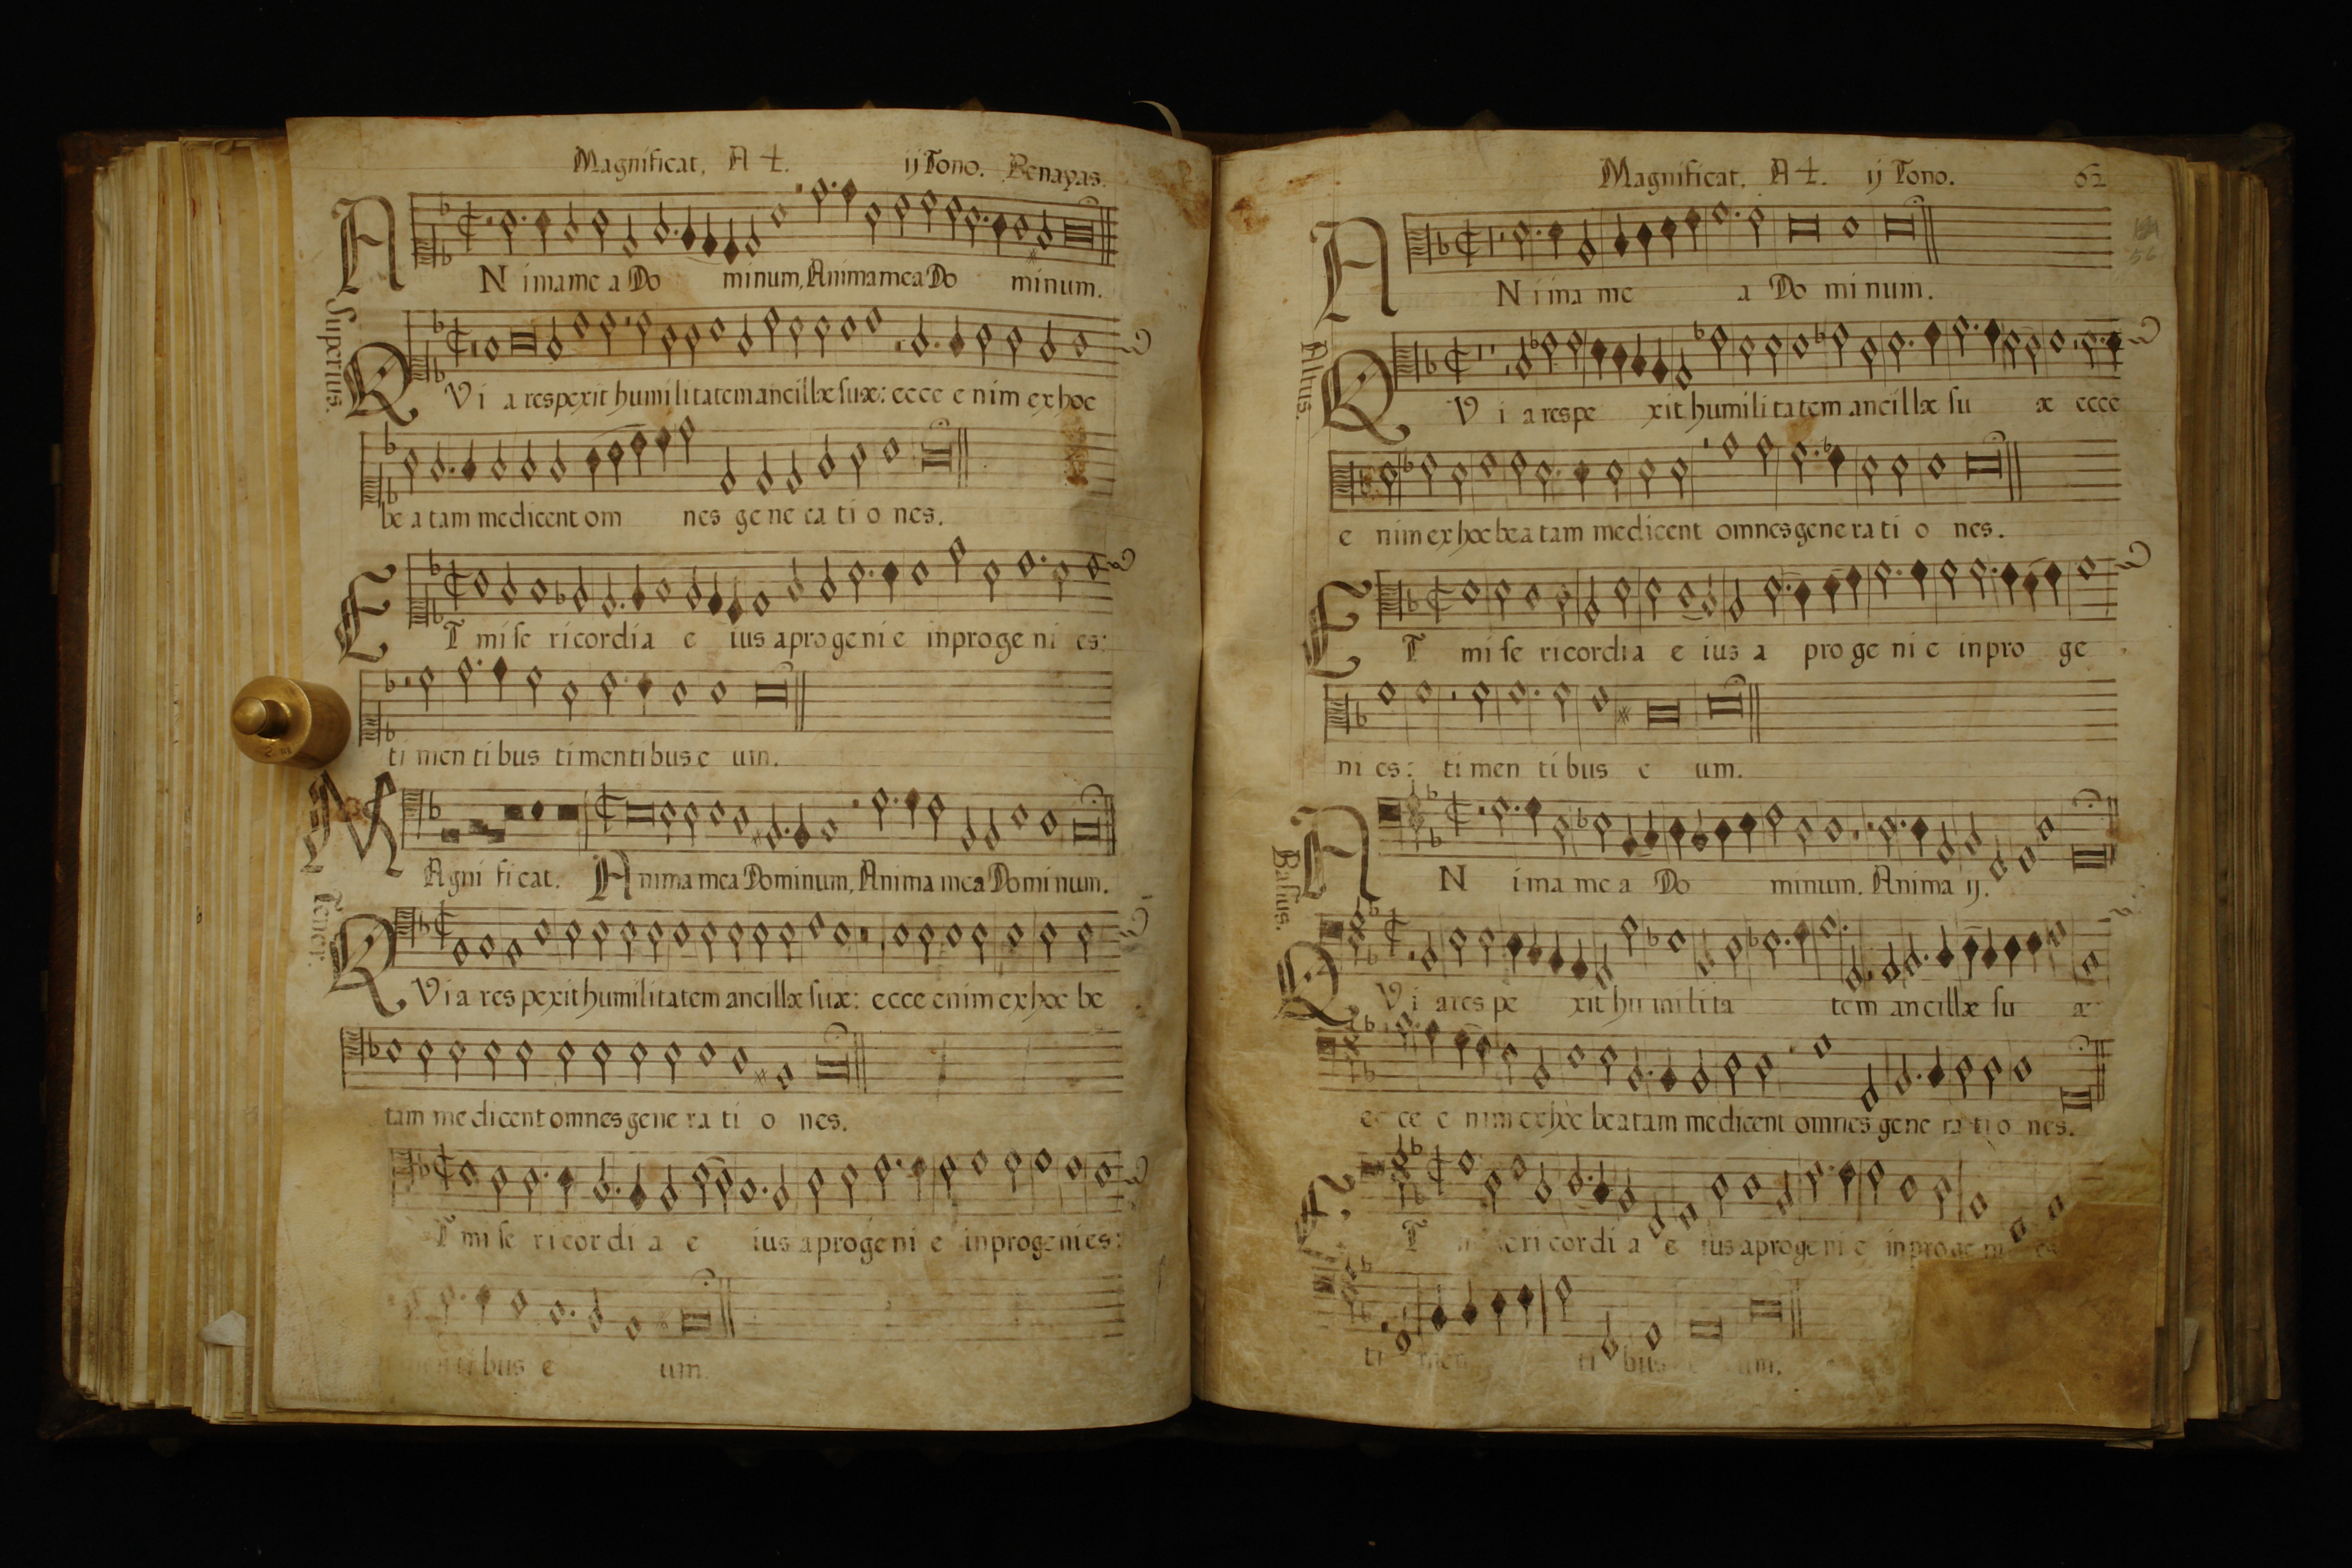 Magnificat, A 4. ij Tono. Benayas.
Superius.
ANima mea Dominum, Anima mea Do minum.
QVi a respexit humilitatem ancillæ suæ: ecce e nim ex hoc
be a tam me dicent om nes ge ne ra ti o nes.
ET mi se ricordia e ius a progeni e in proge ni es:
ti men ti bus ti mentibus e um.
Tenor.
MAgni ficat. Anima mea Dominum, Anima mea Domi num.
QVi a res pexit humilitatem ancillæ suæ: ecce enim ex hoc be
tam me dicent omnes gene ra ti o nes.
T mi se ricordi a e ius a progeni e in progenies:
ti bus e um.
Magnificat. A 4. ij Tono. 62
56
Altus.
ANima me a Do minum.
QVi a respe xit humilitatem ancillæ su æ ecce
e nim ex hoc bea tam me dicent omnes gene ra ti o nes.
ET mi se ricordia e ius a pro ge ni e in pro ge
ni es: ti men ti bus e um.
Basus.
AN ima me a Do minum. Anima ij.
QVi a res pe xit hu mi li ta tem ancillæ su æ
ec ce e nim ex hoc bea tam me dicent omnes gene ra ti o nes.
ET seri cordi a e ius a progeni e in proge ni es
ti men ti bus um.